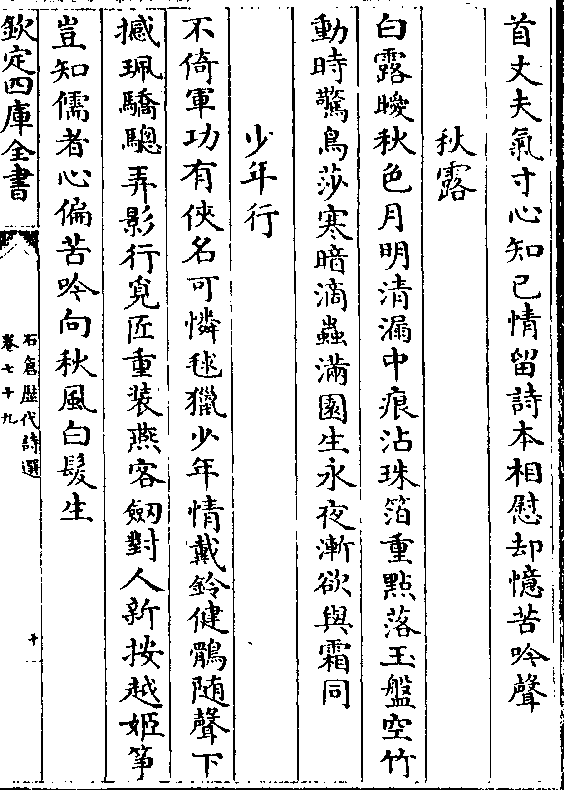 首丈夫氣寸心知己情留詩本相慰却憶苦吟聲
秋露
白露曖秋色月明清漏中痕沾珠箔重點落玉盤空竹
動時驚鳥莎寒暗滴蟲滿園生永夜漸欲與霜同
少年行
不倚軍功有俠名可憐毬獵少年情戴鈴健鶻隨聲下
撼珮驕驄弄影行覓匠重裝燕客劒對人新按越姬箏
豈知儒者心偏苦吟向秋風白髮生
欽定四庫全書
石倉歷代詩選
卷七十九
十一